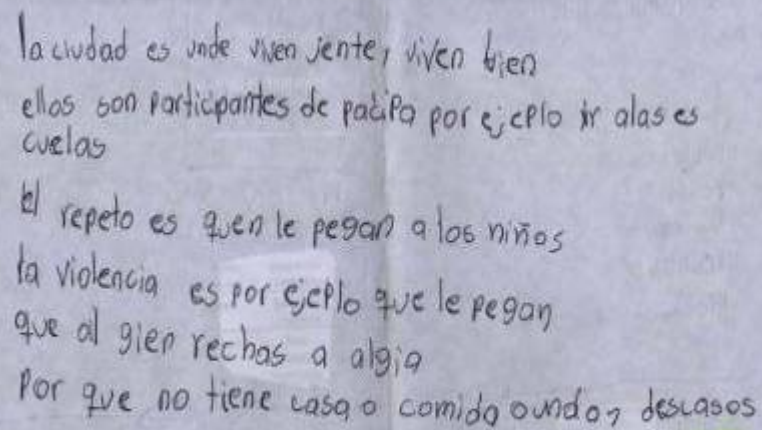 la ciudad es unde viven jente, viven bien
ellos son participantes de paτipa por ejeplo ir alas es
cuelas
El repeto es quen le pegan a los niños
la violencia es por ejeplo que le pegan
que al gien rechas a algia
Por que no tiene casa o comida o descasos